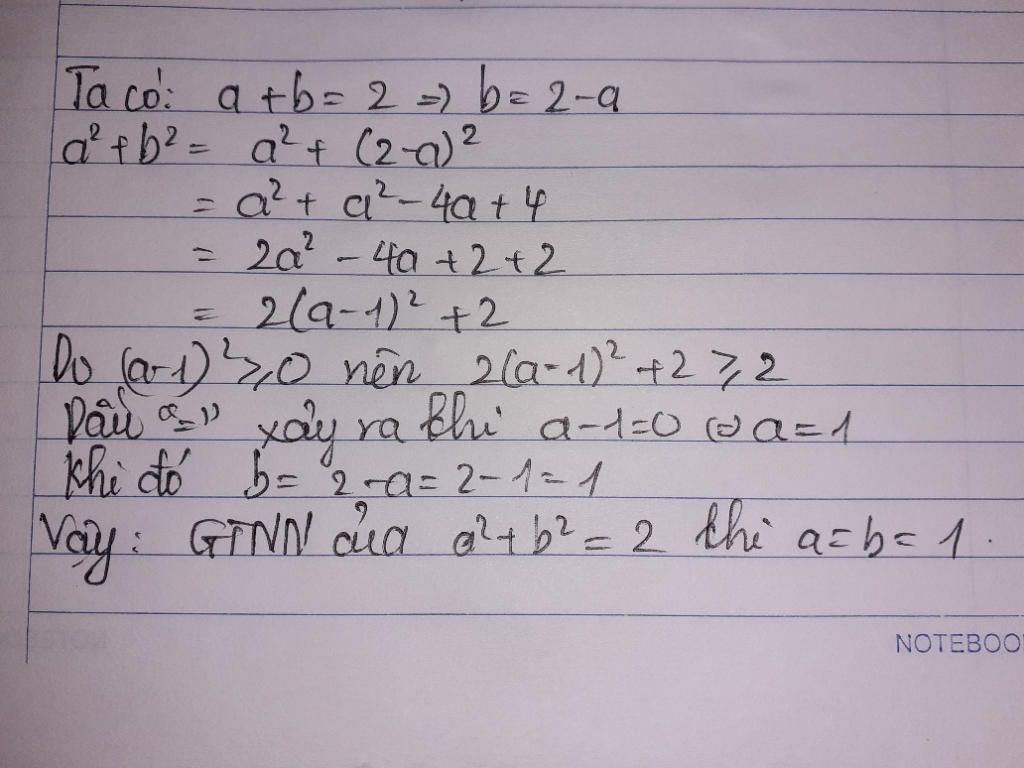 Ta có: a + b = 2 => b = 2-a
a² + b² = a² + (2-a)²
= a² + a² - 4a + 4
= 2a² - 4a + 2 + 2
= 2(a-1)² + 2
Do (a-1)² ≥ 0 nên 2(a-1)² + 2 ≥ 2
Dấu "=" xảy ra khi a-1=0 ⇔ a=1
Khi đó b = 2-a = 2-1 = 1
Vậy: GTNN của a² + b² = 2 khi a = b = 1.
NOTEBOO